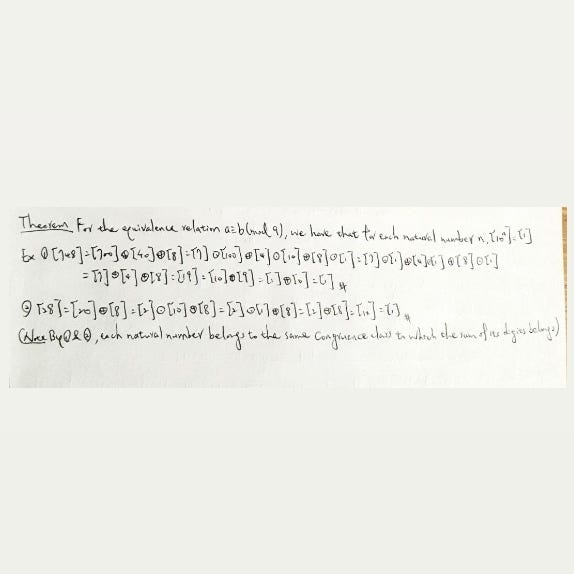 Theorem For the equivalence relation a≡b(mod 9), we have that for each natural number n, [10ⁿ]=[1]
Ex ① [748]=[700]⊕[40]⊕[8]=[7]⊙[100]⊕[4]⊙[10]⊕[8]⊙[1]=[7]⊙[1]⊕[4]⊙[1]⊕[8]⊙[1]
=[7]⊕[4]⊕[8]=[19]=[10]⊕[9]=[1]⊕[0]=[1] #
② [28]=[20]⊕[8]=[2]⊙[10]⊕[8]=[2]⊙[1]⊕[8]=[2]⊕[8]=[10]=[1] #
(Note By ① & ②, each natural number belongs to the same congruence class to which the sum of its digits belongs)